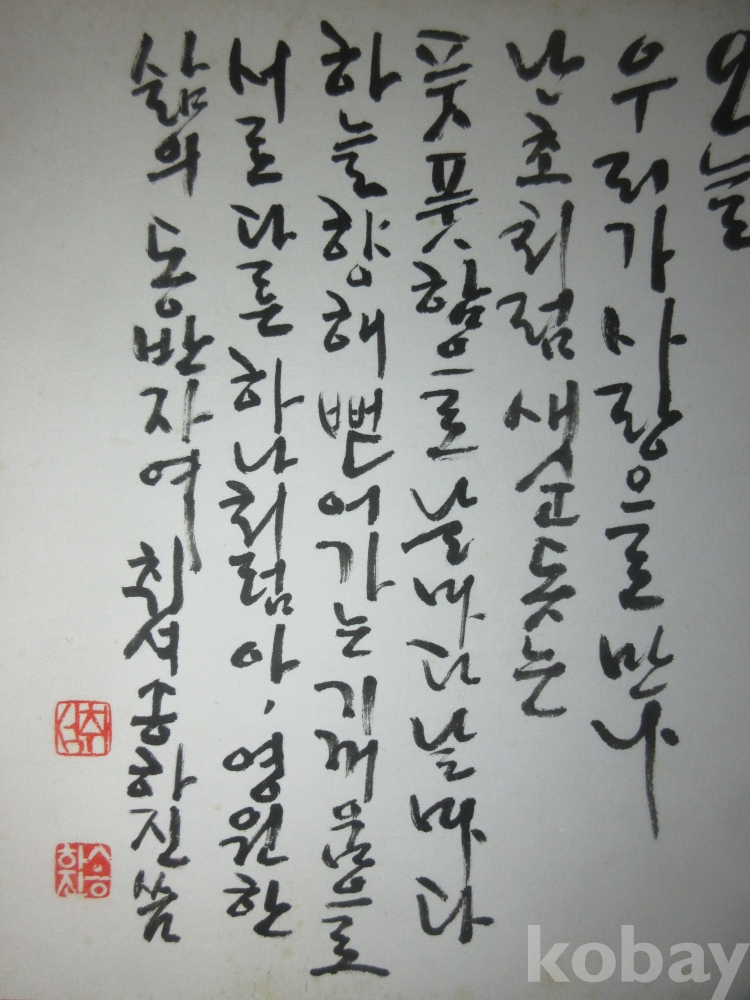 오늘
우리가 사랑으로 만나
난초처럼 새순 돋는
풋풋함으로 날마다 날마다
하늘 향해 뻗어가는 기꺼움으로
서로 다른 하나처럼 아, 영원한
삶의 동반자여 취석 송하진 씀
취석
송하진
kobay